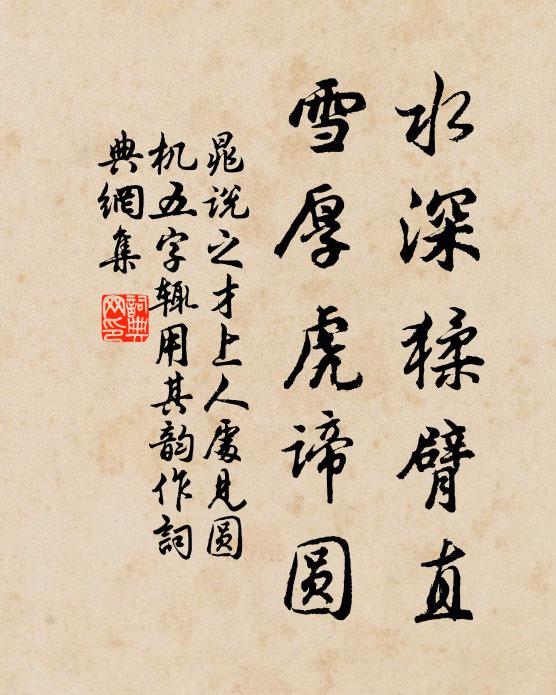 水深猱臂直
雪厚虎谛圆
晁说之才上人处见圆
机五字辄用其韵作词
典網集
詞典
网印